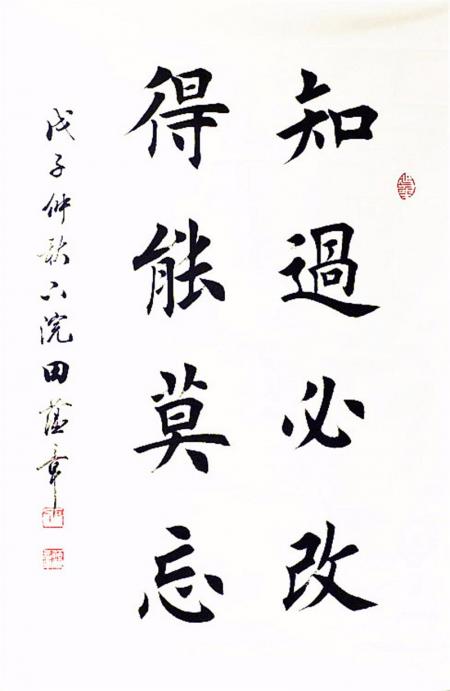 知過必改
得能莫忘
戊子仲秋六院田蕴章